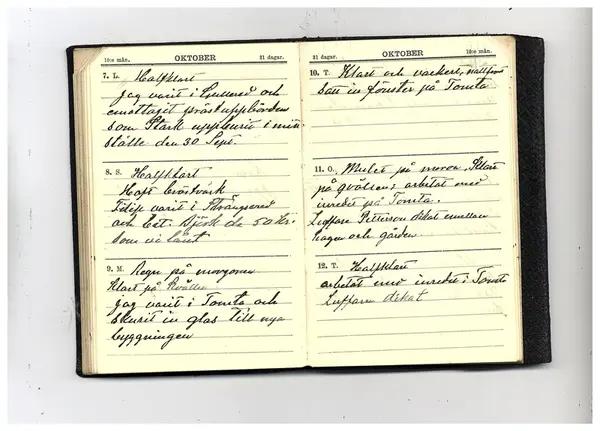 10:e mån. OKTOBER 31 dagar.
7. L. Halfklart
jag varit i och
emottagit prästuppbörden
som Stark uppburit i mitt
ställe den 30 Sept.
8. S. Halfklart
Haft
Filip varit i
och bet. Björk de 50 kr.
som vi länt
9. M. Regn på morgonen
klart på kvällen
jag varit i Tomta och
skurit in glas till nya
byggningen
31 dagar. OKTOBER 10:e mån.
10. T. Klart och vackert, nattfrost
satt in fönster på Tomta
11. O. Mulet på moron. Klart
på qvällen, arbetat med
inredet på Tomta.
Luffare Petterson dikat emellan
hagen och gården
12. T. Halfklart
arbetat med inredet i Tomta
Luffaren dikat